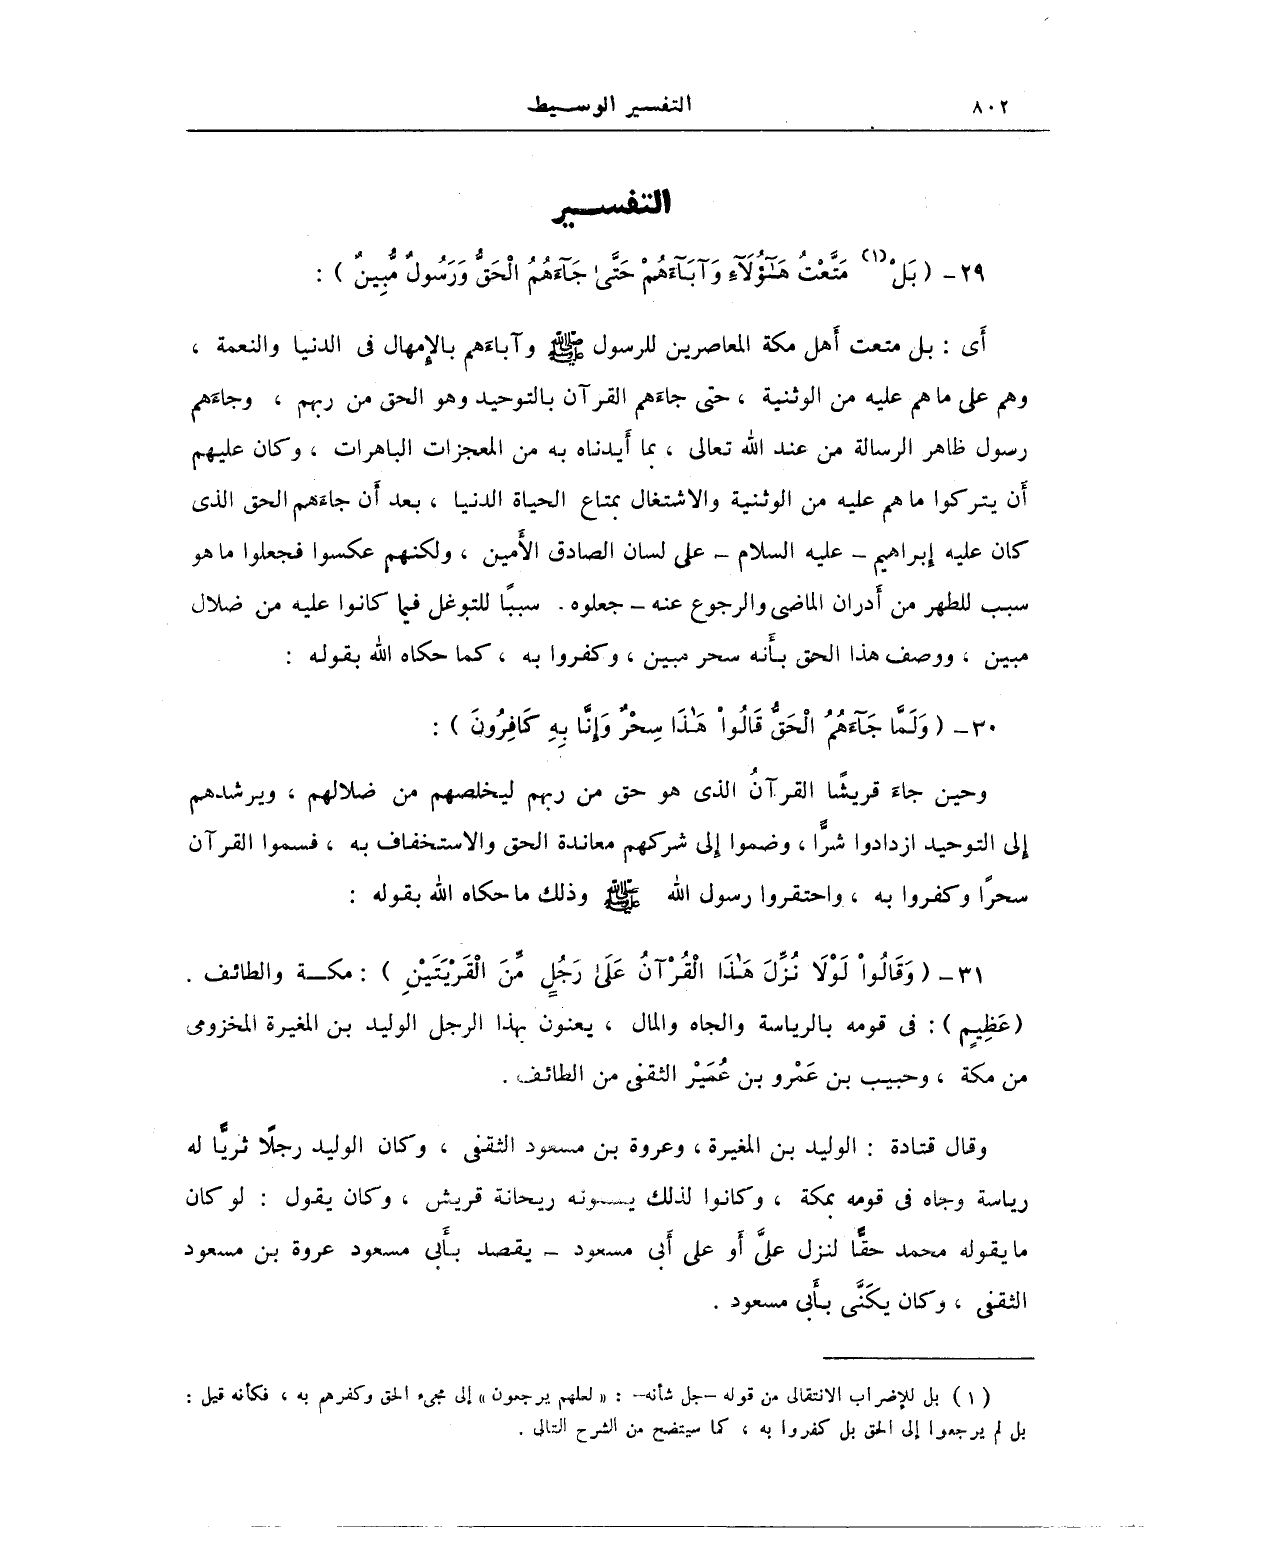 ٨٠٢ التفسير الوسيط
التفسير
٢٩- ( بَلْ (١) مَتَّعْتُ هَـٰٓؤُلَآءِ وَآبَآءَهُمْ حَتَّىٰ جَآءَهُمُ الْحَقُّ وَرَسُولٌ مُّبِينٌ ) :
أَى : بل متعت أهل مكة المعاصرين للرسول ﷺ وآباءهم بالإمهال فى الدنيا والنعمة ،
وهم على ما هم عليه من الوثنية ، حتى جاءهم القرآن بالتوحيد وهو الحق من ربهم ، وجاءهم
رسول ظاهر الرسالة من عند الله تعالى ، بما أيدناه به من المعجزات الباهرات ، وكان عليهم
أن يتركوا ما هم عليه من الوثنية والاشتغال بمتاع الحياة الدنيا ، بعد أن جاءهم الحق الذى
كان عليه إبراهيم – عليه السلام – على لسان الصادق الأمين ، ولكنهم عكسوا فجعلوا ما هو
سبب للطهر من أدران الماضى والرجوع عنه – جعلوه . سببًا للتوغل فيما كانوا عليه من ضلال
مبين ، ووصف هذا الحق بأنه سحر مبين ، وكفروا به ، كما حكاه الله بقوله :
٣٠- ( وَلَمَّا جَآءَهُمُ الْحَقُّ قَالُواْ هَـٰذَا سِحْرٌ وَإِنَّا بِهِ كَافِرُونَ ) :
وحين جاءَ قريشًا القرآنُ الذى هو حق من ربهم ليخلصهم من ضلالهم ، ويرشدهم
إلى التوحيد ازدادوا شرًّا ، وضموا إلى شركهم معاندة الحق والاستخفاف به ، فسموا القرآن
سحرًا وكفروا به ، واحتقروا رسول الله ﷺ وذلك ما حكاه الله بقوله :
٣١- ( وَقَالُواْ لَوْلَا نُزِّلَ هَـٰذَا الْقُرْآنُ عَلَىٰ رَجُلٍ مِّنَ الْقَرْيَتَيْنِ ) : مكة والطائف .
( عَظِيمٍ ) : فى قومه بالرياسة والجاه والمال ، يعنون بهذا الرجل الوليد بن المغيرة المخزومى
من مكة ، وحبيب بن عَمْرو بن عُمَيْر الثقفى من الطائف .
وقال قتادة : الوليد بن المغيرة ، وعروة بن مسعود الثقفى ، وكان الوليد رجلًا ثريًّا له
رياسة وجاه فى قومه بمكة ، وكانوا لذلك يسمونه ريحانة قريش ، وكان يقول : لو كان
ما يقوله محمد حقًّا لنزل علىَّ أو على أبى مسعود – يقصد بأبى مسعود عروة بن مسعود
الثقفى ، وكان يكَنَّى بأبى مسعود .
( ١ ) بل للإضراب الانتقالى من قوله –جل شأنه– : « لعلهم يرجعون » إلى مجىء الحق وكفرهم به ، فكأنه قيل :
بل لم يرجعوا إلى الحق بل كفروا به ، كما سيتضح من الشرح التالى .